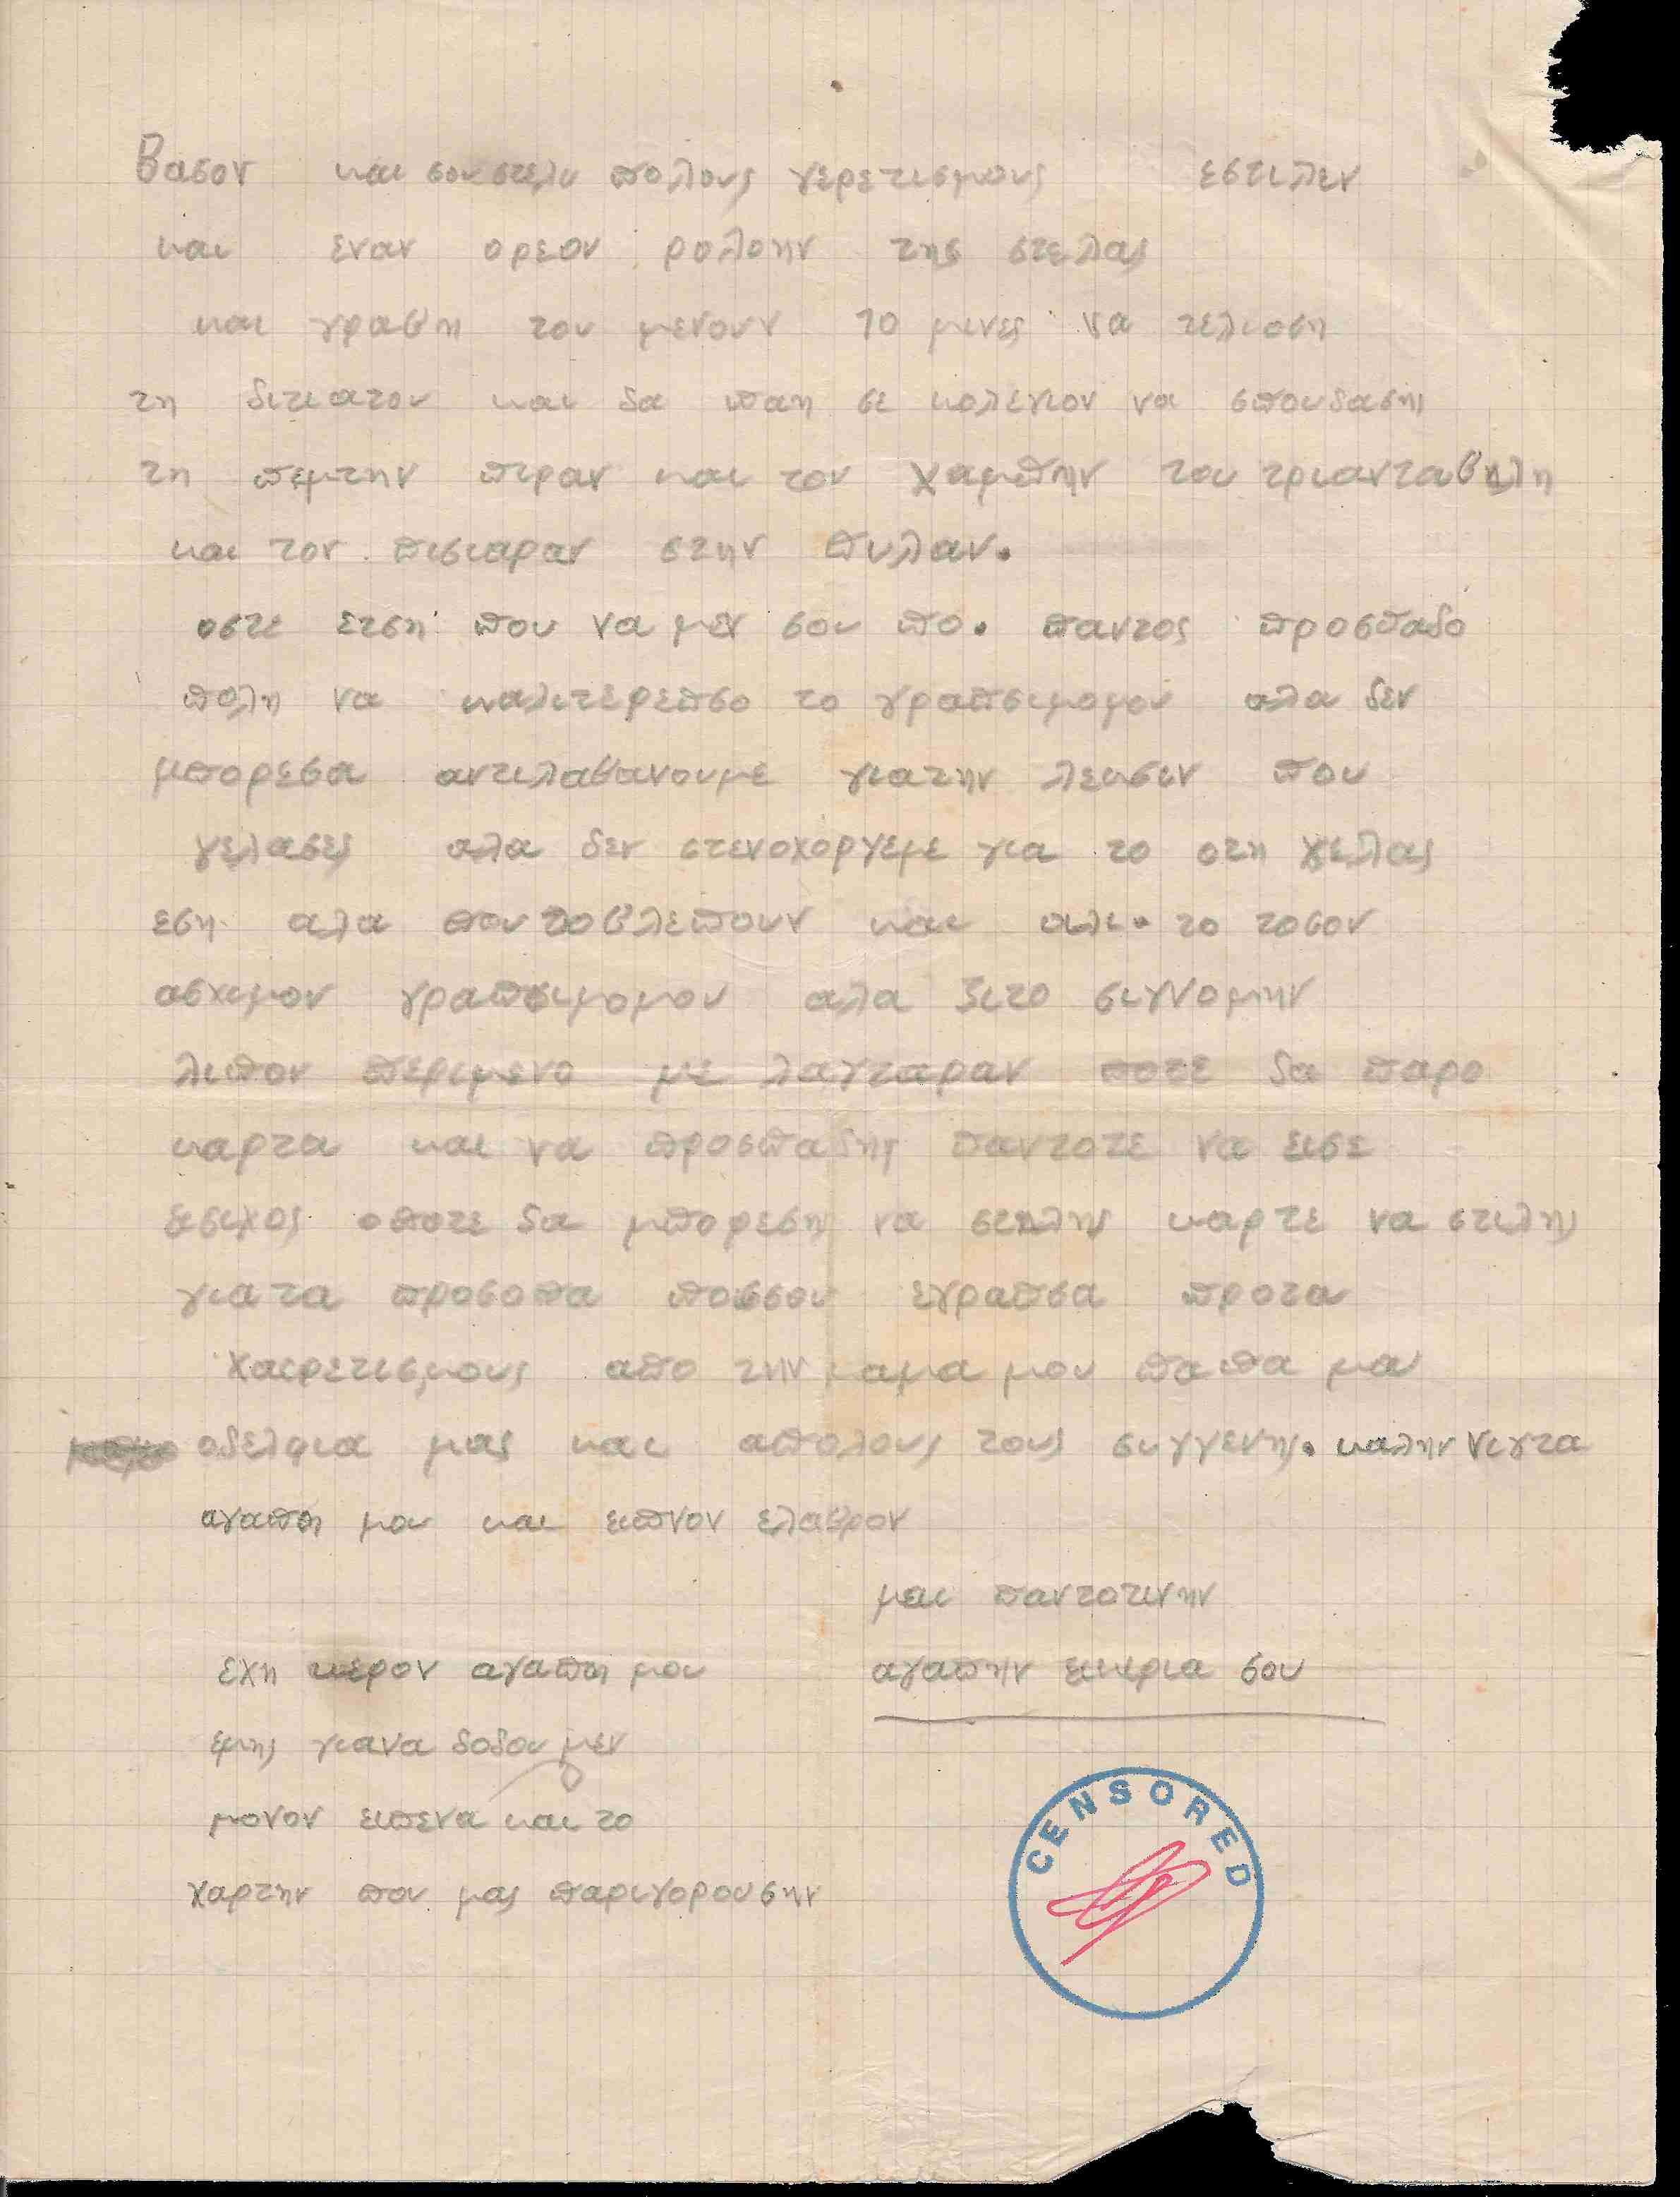 βασον και σουστελι πολους γερετισμους εστιλεν
και εναν ορεον ρολοην της στελας
και γραβη του μενουν 10 μινες να τελιοση
τη διτιατου και δα παη σε κολεγιον να σπουδασης
τη πεμτην πιραν και τον χαμπην του τριανταβηλη
και τον πισιαραν στην πυλαν.
οστε ετση που να μεν σου πο. παντος προσπαδο
πολη να καλιτερεπσο το γραπσιμομου αλα δεν
μπορεσα αντιλαβανουμε γιατην λεκσιν που
γελασες αλα δεν στενοχοργεμε για το οτη γελας
εση αλα που τοβλεπουν και αλι. το τοσον
ασχιμον γραπσιμομου αλα ζιτο σιγνομην
λιπον περιμενο με λαχταραν ποτε δα παρο
καρτα και να προσπαδης παντοτε να εισε
εισιχος οποτε δα μπορεσης να στιλης καρτε να στιλης
γιατα προσοπα ποσσου εγραπσα προτα
χαιρετισμους απο την μαμα μου παπα μου
οδελφια μας και απολους τους συγγενης. καλην νιχτα
αγαπη μου και ειπνον ελαβρον
μαι παντοτινην
αγαπην εικερια σου
εχη κερον αγαπη μου
εμης γιανα δοδου μεν
μονον ειπενα και το
χαρτην που μας παριγορουσην
CENSORED